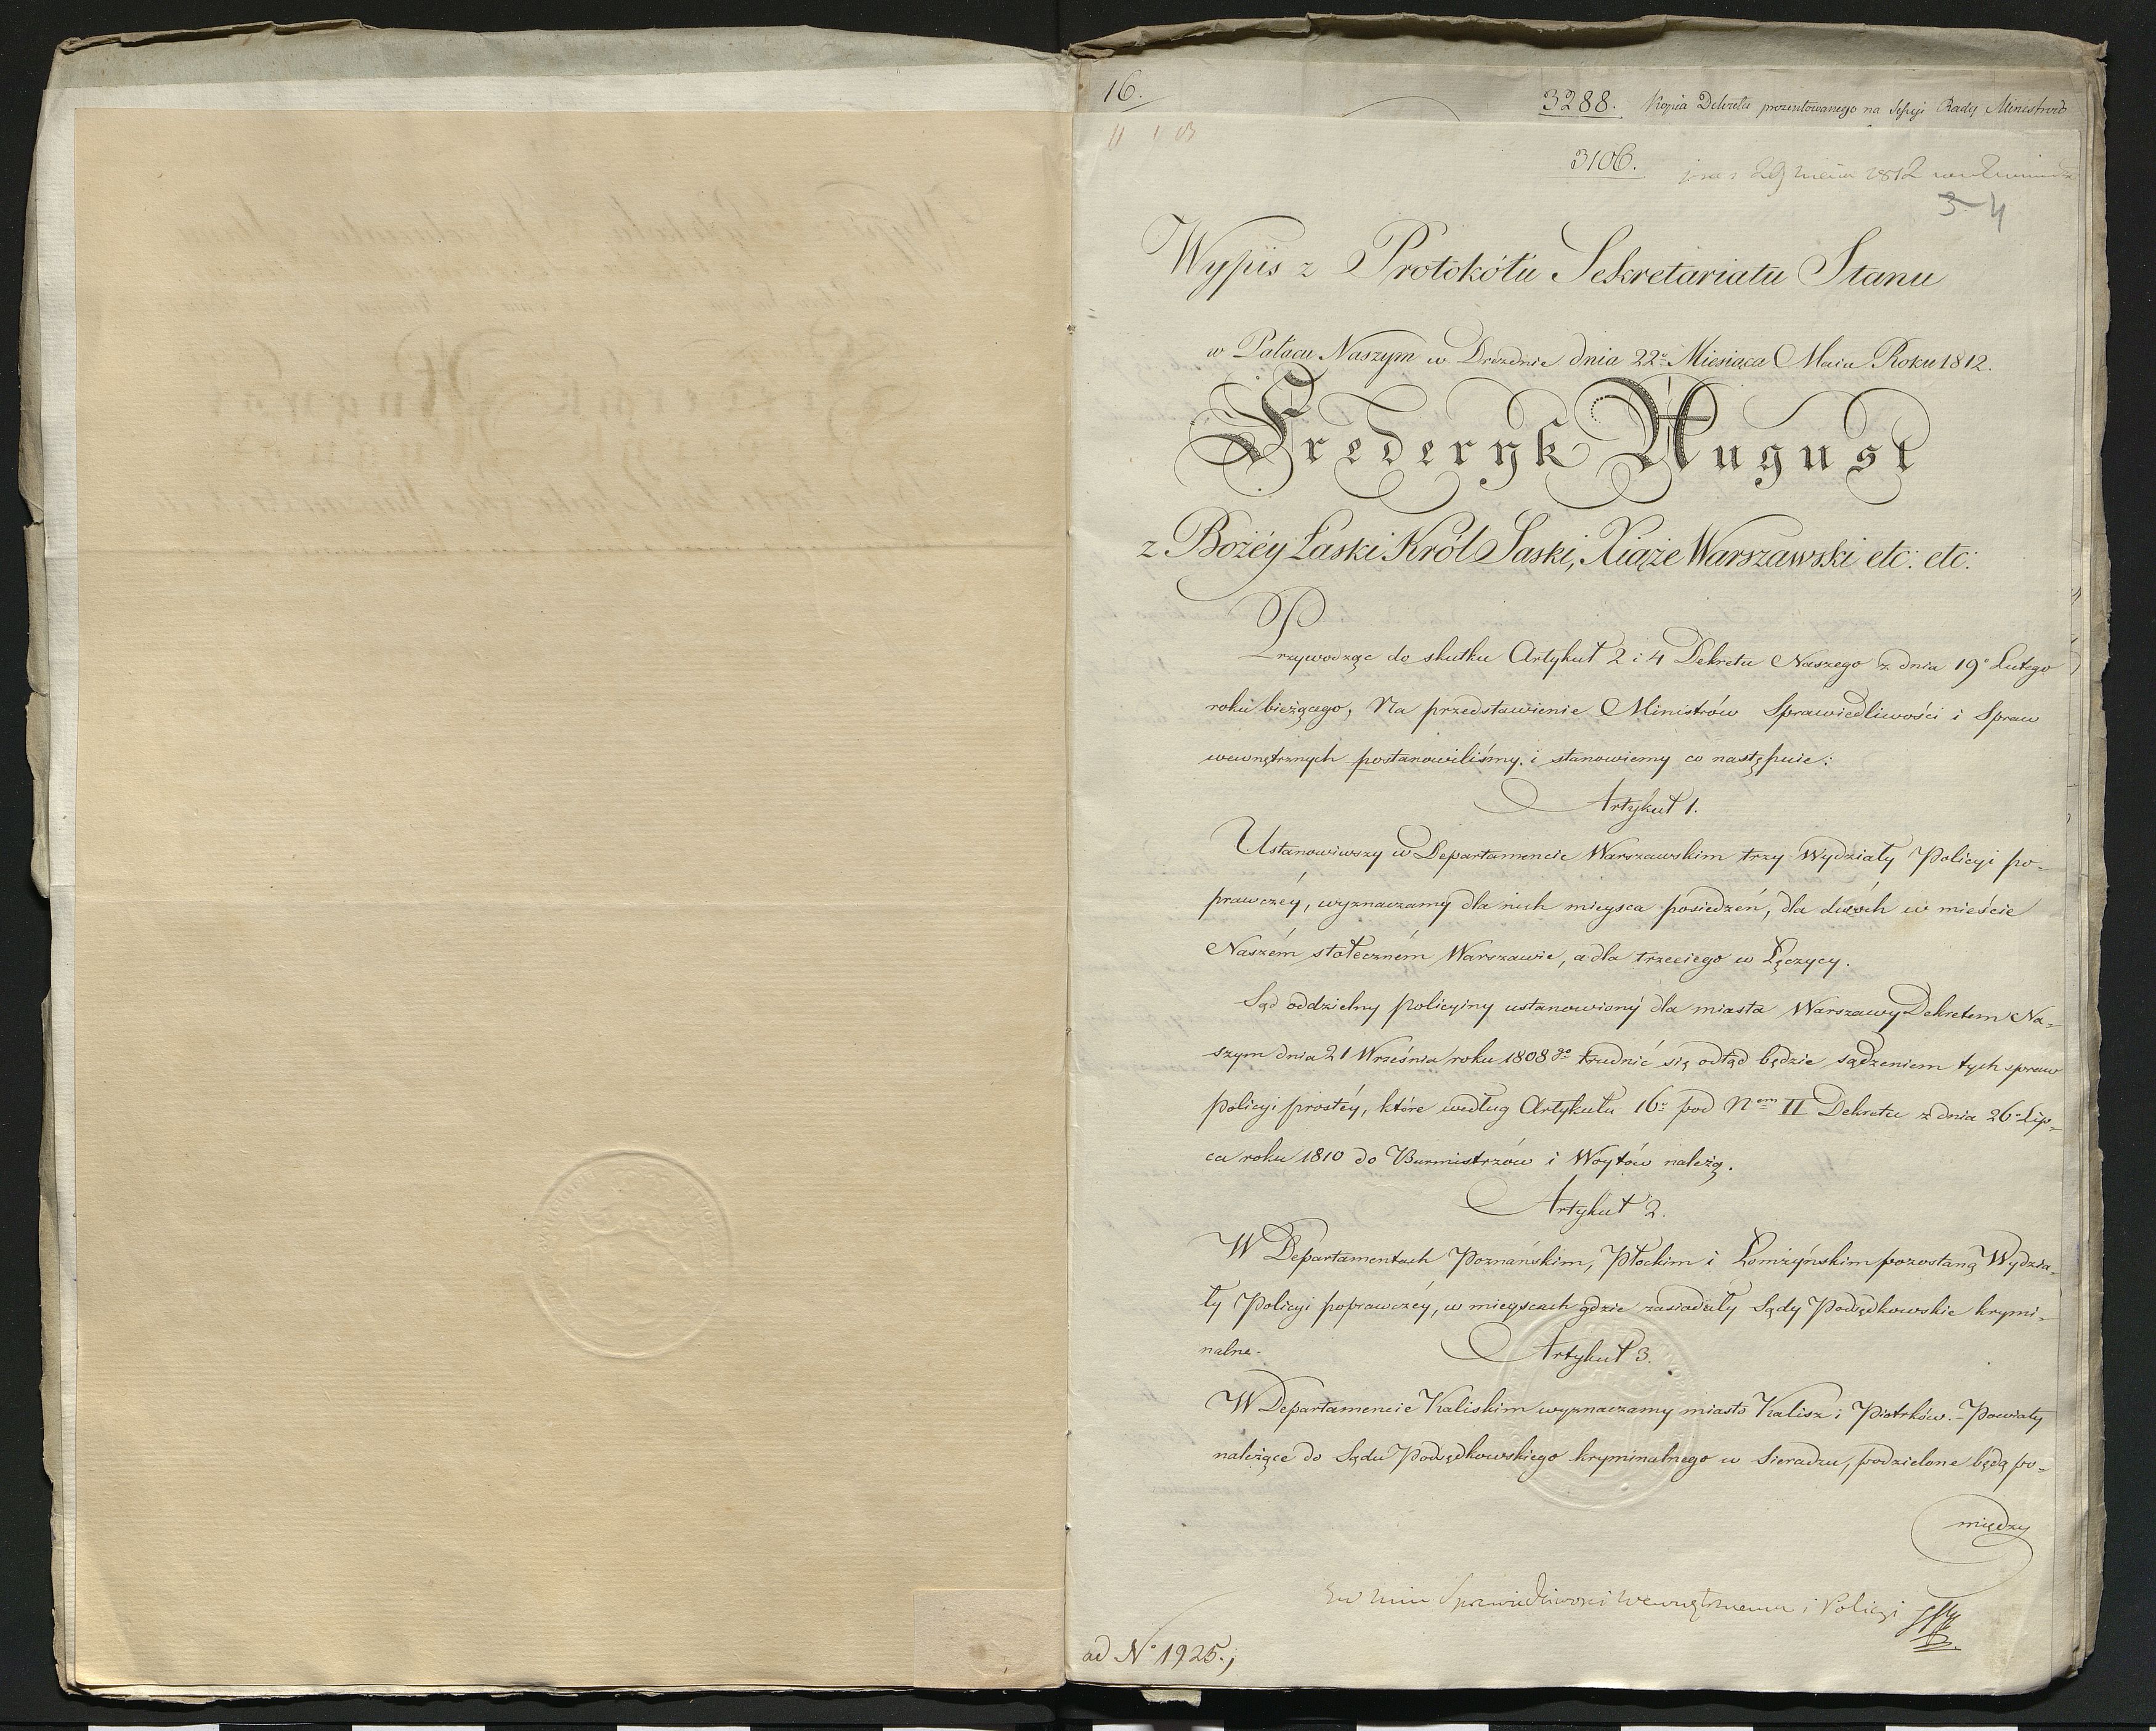 16.
3288. Kopia Dekretu prezentowanego na Sessyi Rady Ministrów
3106.
29 1812
3 4
Wypis z Protokółu Sekretariatu Stanu
w Pałacu Naszym w Dreźnie dnia 22º Miesiąca Maia Roku 1812.
Frederyk August
z Bożéy Łaski Król Saski, Xiąże Warszawski etc: etc:
Przywodząc do skutku Artykuł 2 i 4 Dekretu Naszego z dnia 19º Lutego
roku bieżącego, Na przedstawienie Ministrów Sprawiedliwości i Spraw
wewnętrznych postanowiliśmy i stanowiemy co następuie:
Artykuł 1.
Ustanowiwszy w Departamencie Warszawskim trzy Wydziały Policyi po-
prawczéy, wyznaczamy dla nich mieysca posiedzeń, dla dwóch w mieście
Naszém stołeczném Warszawie, a dla trzeciego w Łęczycy.
Sąd oddzielny policyiny ustanowiony dla miasta Warszawy Dekretem Na-
szym dnia 21 Września roku 1808go trudnić się odtąd będzie sądzeniem tych spraw
policyi prostéy, które według Artykułu 16º pod Nem II Dekretu z dnia 26º Lip-
ca roku 1810 do Burmistrzów i Woytów należą.
Artykuł 2.
W Departamentach Poznańskim, Płockim i Łomżyńskim pozostaną Wydzia-
ły Policyi poprawczéy, w mieyscach gdzie zasiadały Sądy Podsędkowskie krymi-
nalne.
Artykuł 3.
W Departamencie Kaliskim wyznaczamy miasto Kalisz i Piotrków. - Powiaty
należące do Sądu Podsędkowskiego kryminalnego w Sieradzu, podzielone będą po-
między
Sprawiedliwości Wewnętrznemu i Policyi
ad Nº 1925.;